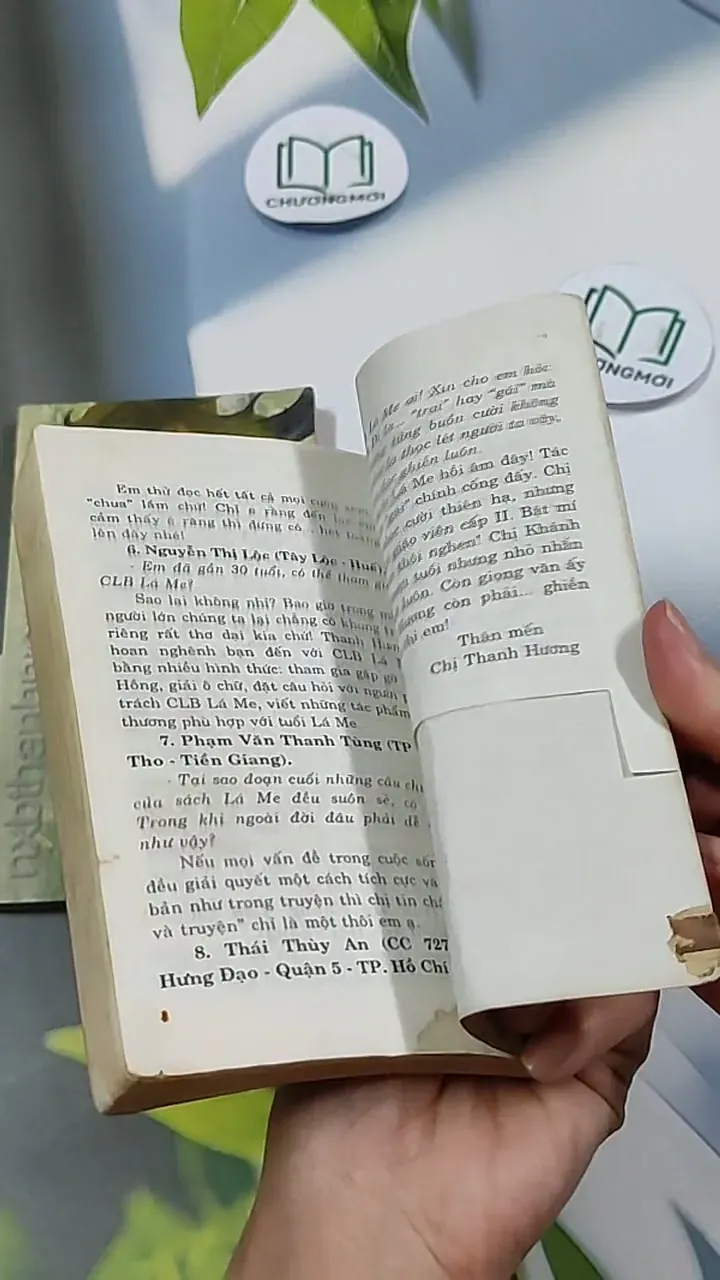 CHƯƠNGMỚI
ƯƠNGMỚI
nxbthanh
Em thử đọc hết tất cả mọi cuốn xem
"chua" lắm chứ! Chị e rằng đến lúc
cảm thấy e rằng thì đừng có... hét
lên đấy nhé!
6. Nguyễn Thị Lộc (Tây Lộc - Huế)
- Em đã gần 30 tuổi, có thể tham gia
CLB Lá Me?
Sao lại không nhỉ? Bao giờ trong mỗi
người lớn chúng ta lại chẳng có khung
riêng rất thơ dại kia chứ! Thanh Hương
hoan nghênh bạn đến với CLB Lá
bằng nhiều hình thức: tham gia gặp gỡ
Hồng, giải ô chữ, đặt câu hỏi với người
trách CLB Lá Me, viết những tác phẩm
thương phù hợp với tuổi Lá Me
7. Phạm Văn Thanh Tùng (TP
Tho - Tiền Giang).
- Tại sao đoạn cuối những câu
của sách Lá Me đều suôn sẻ, có
Trong khi ngoài đời đâu phải dễ
như vậy?
Nếu mọi vấn đề trong cuộc sốn
đều giải quyết một cách tích cực và
bản như trong truyện thì chị tin
và truyện" chỉ là một thôi em ạ.
8. Thái Thùy An (CC 727
Hưng Đạo - Quận 5 - TP. Hồ Chí
Lá Me ơi! Xin cho em hỏi:
Di Li... "trai" hay "gái" mà
cũng buồn cười không
thọc lét người ta vậy,
ghiền luôn.
Lá Me hồi âm đây! Tác
"gái" chính cống đấy. Chị
cười thiên hạ, nhưng
giáo viên cấp II. Bật mí
thôi nghen! Chị Khánh
tuổi nhưng nhỏ nhắn
luôn. Còn giọng văn ấy
còn phải... ghiền
chị em!
Thân mến
Chị Thanh Hương